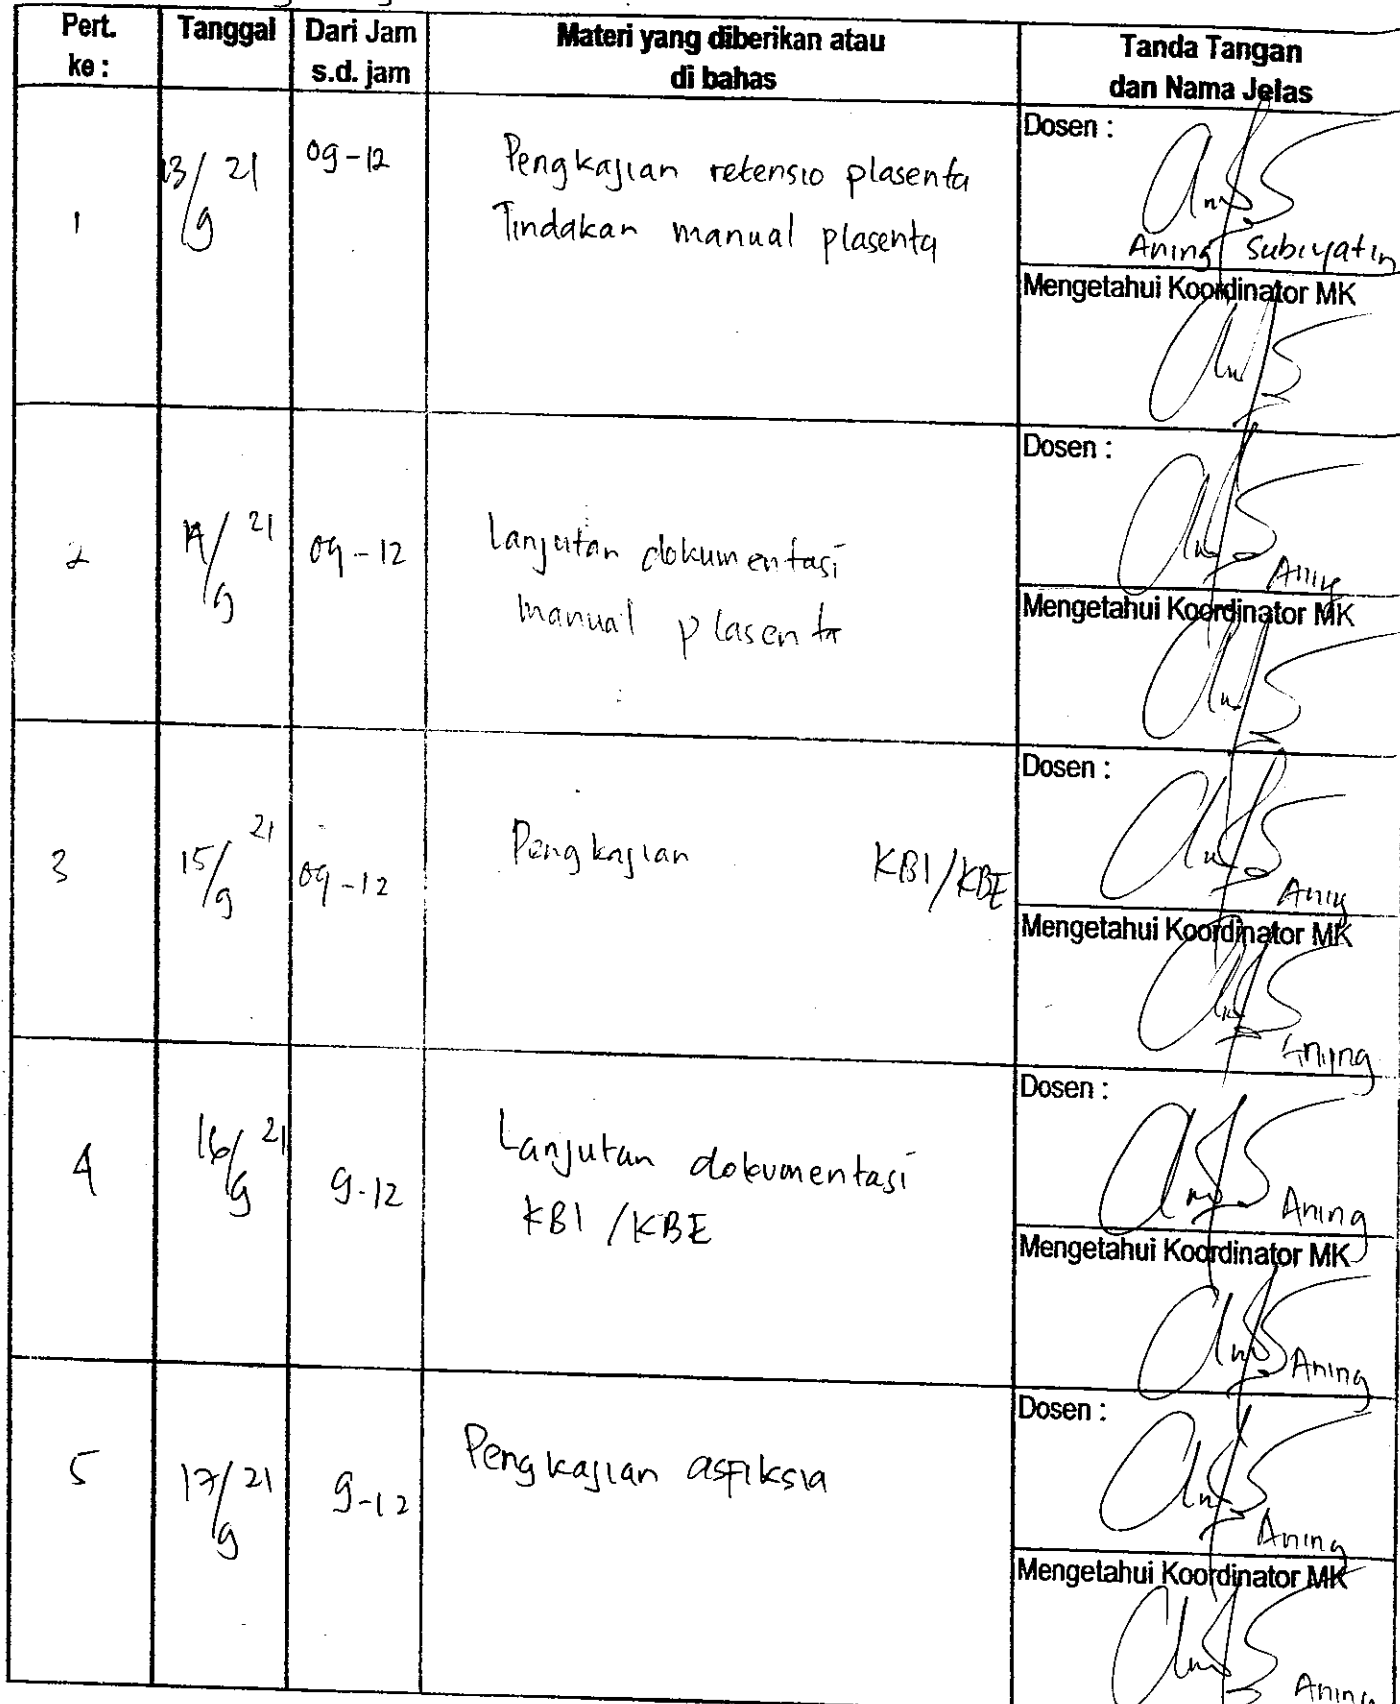 Pert. ke :
Tanggal
Dari Jam s.d. jam
Materi yang diberikan atau di bahas
Tanda Tangan dan Nama Jelas
1
13/9 21
09-12
Pengkajian retensio plasenta
Tindakan manual plasenta
Dosen :
Aning Subiyatin
Mengetahui Koordinator MK
2
14/9 21
09-12
Lanjutan dokumentasi
manual plasenta
Dosen :
Aning
Mengetahui Koordinator MK
3
15/9 21
09-12
Pengkajian KBI/KBE
Dosen :
Aning
Mengetahui Koordinator MK
Aning
4
16/9 21
9-12
Lanjutan dokumentasi
KBI/KBE
Dosen :
Aning
Mengetahui Koordinator MK
Aning
5
17/9 21
9-12
Pengkajian asfiksia
Dosen :
Aning
Mengetahui Koordinator MK
Aning